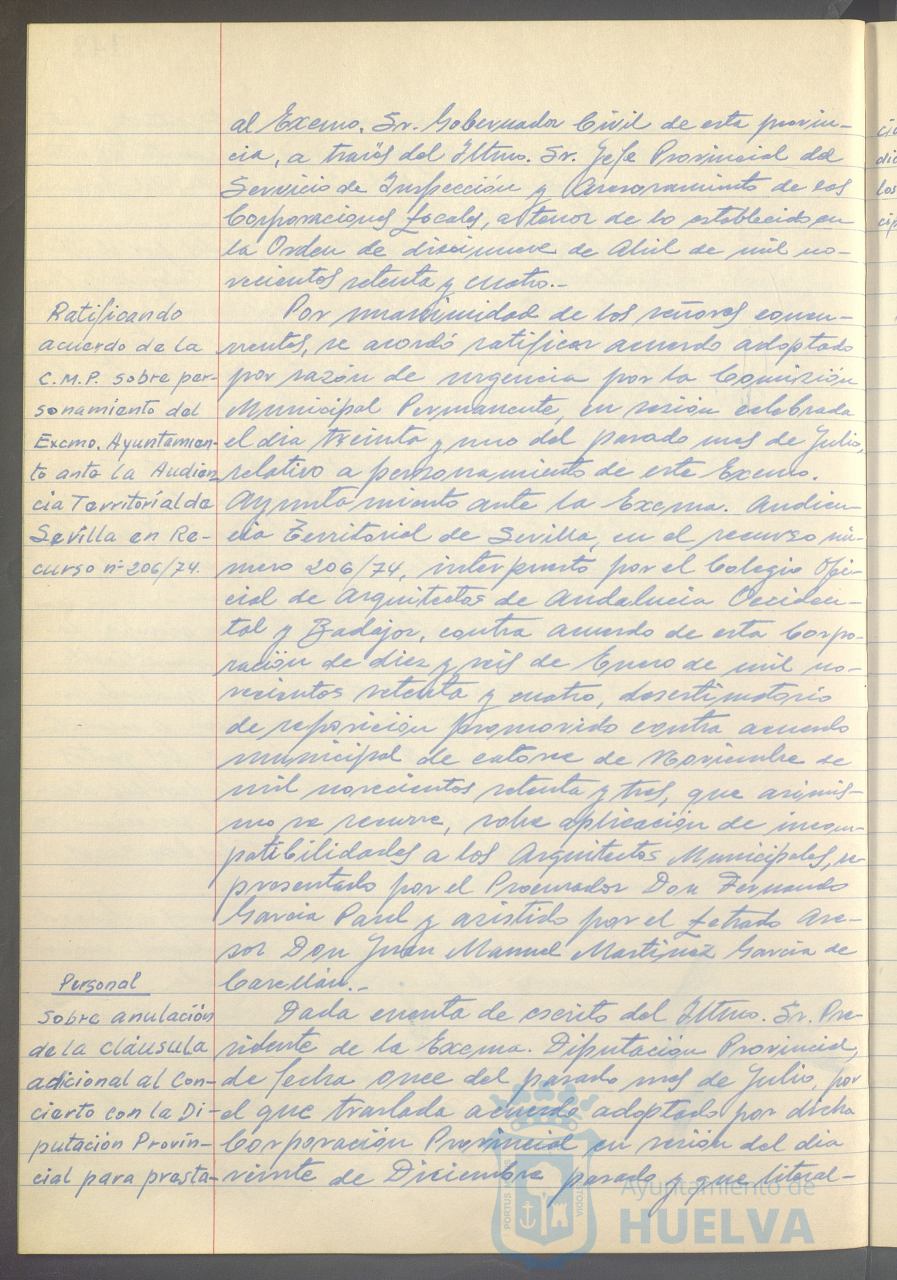 al Excmo. Sr. Gobernador Civil de esta provin-
cia, a través del Iltmo. Sr. Jefe Provincial del
Servicio de Inspección y Asesoramiento de las
Corporaciones Locales, a tenor de lo establecido en
la Orden de diecinueve de Abril de mil no-
vecientos setenta y cuatro.-
Ratificando
acuerdo de la
C.M.P. sobre per-
sonamiento del
Excmo. Ayuntamien-
to ante la Audien-
cia Territorial de
Sevilla en Re-
curso nº 206/74.
Por unanimidad de los señores concu-
rrentes, se acordó ratificar acuerdo adoptado
por razón de urgencia por la Comisión
Municipal Permanente, en sesión celebrada
el dia treinta y uno del pasado mes de Julio,
relativo a personamiento de este Excmo.
Ayuntamiento ante la Excma. Audien-
cia Territorial de Sevilla, en el recurso nú-
mero 206/74, interpuesto por el Colegio Ofi-
cial de Arquitectos de Andalucia Occiden-
tal y Badajoz, contra acuerdo de esta Corpo-
ración de diez y seis de Enero de mil no-
vecientos setenta y cuatro, desestimatorio
de reposición promovido contra acuerdo
municipal de catorce de Noviembre de
mil novecientos setenta y tres, que asimis-
mo se recurre, sobre aplicación de incom-
patibilidades a los Arquitectos Municipales, re-
presentado por el Procurador Don Fernando
Garcia Paul y asistido por el Letrado Ase-
sor Don Juan Manuel Martinez Garcia de
Casellán.-
Personal
Sobre anulación
de la cláusula
adicional al Con-
cierto con la Di-
putación Provin-
cial para presta-
Dada cuenta de escrito del Iltmo. Sr. Pre-
sidente de la Excma. Diputación Provincial,
de fecha once del pasado mes de Julio, por
el que traslada acuerdo adoptado por dicha
Corporación Provincial en sesión del dia
veinte de Diciembre pasado y que literal-
Ayuntamiento de
HUELVA